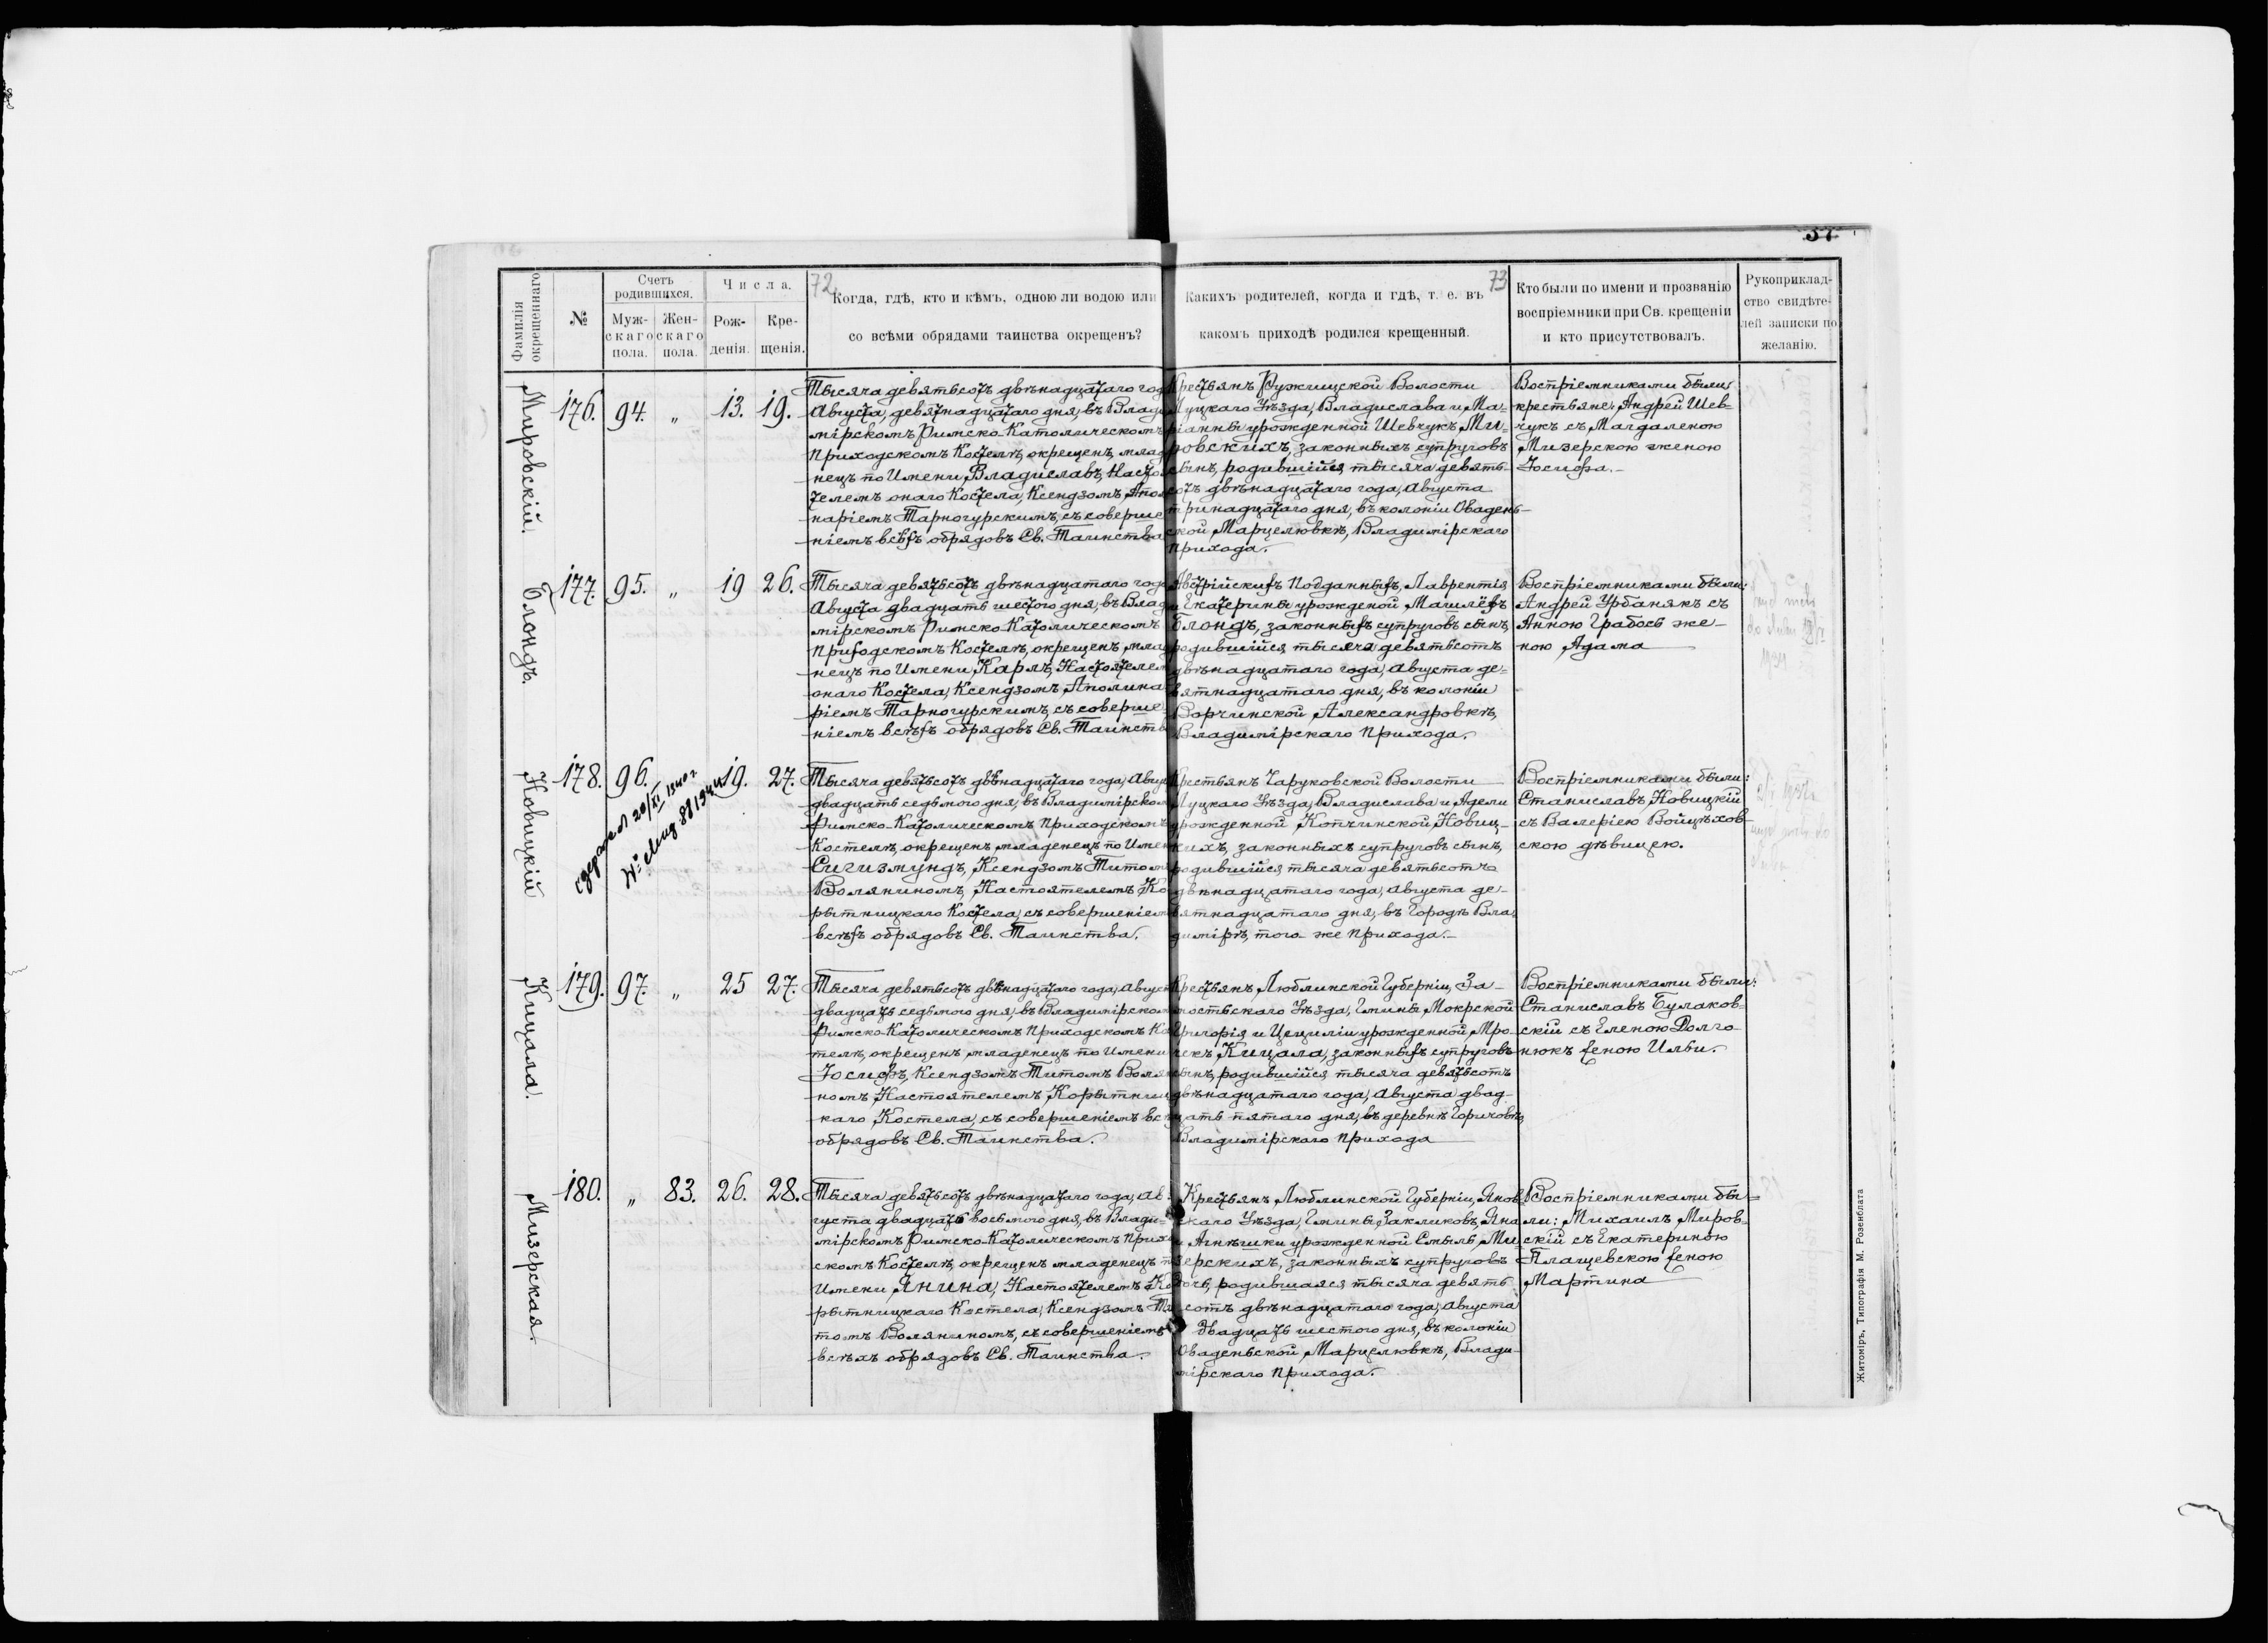 37
72
73
Фамилія окрещеннаго
№
Счетъ родившихся.
Мужскаго пола.
Женскаго пола.
Числа.
Рожденія.
Крещенія.
Когда, гдѣ, кто и кѣмъ, одною ли водою или
со всѣми обрядами таинства окрещенъ?
Какихъ родителей, когда и гдѣ, т. е. въ
какомъ приходѣ родился крещенный.
Кто были по имени и прозванію
воспріемники при Св. крещеніи
и кто присутствовалъ.
Рукоприклад-
ство свидѣте-
лей записки по
желанію.
Мировскій.
176. 94. „ 13. 19.
Тысяча девятьсотъ двѣнадцатаго год
Августа, девятнадцатаго дня, въ Влади
мірскомъ Римско-Католическомъ
Приходскомъ Костелѣ, окрещенъ, млад
нецъ по Имени Владиславъ, Насто
телемъ онаго Костела, Ксендзомъ Апол
наріемъ Тарногурскимъ, съ соверше
ніемъ всѣхъ обрядовъ Св. Таинства
Крестьянъ Ружищской Волости
Луцкаго Уѣзда, Владислава и Ма-
ріанны урожденной Шевчукъ Ми-
ровскихъ, законныхъ супруговъ
сынъ, родившійся тысяча девять-
сотъ двѣнадцатаго года, Августа
тринадцатаго дня, въ колоніи Овадень-
ской Марцелювкѣ, Владимірскаго
прихода.
Воспріемниками были
крестьяне: Андрей Шев-
чукъ съ Магдаленою
Мизерскою женою
Іосифа.
Блондъ.
177. 95. „ 19 26.
Тысяча девятьсотъ двѣнадцатаго года
Августа двадцать шестого дня, въ Влад
мірскомъ Римско-Католическомъ
Приходскомъ Костелѣ, окрещенъ млад
нецъ по Имени Карлъ, Настоятелем
онаго Костела, Ксендзомъ Аполина
ріемъ Тарногурскимъ, съ соверше
ніемъ всѣхъ обрядовъ Св. Таинств
Австрійскихъ Подданныхъ, Лаврентія
и Екатерины урожденой Машлёхъ
Блондъ, законныхъ супруговъ сынъ,
родившійся тысяча девятьсотъ
двѣнадцатаго года, Августа де-
вятнадцатаго дня, въ колоніи
Ворчинской Александровкѣ,
Владимірскаго Прихода.
Воспріемниками были:
Андрей Урбанякъ съ
Анною Грабось же-
ною Адама
Новицкій
178. 96. 19. 27.
Тысяча девятьсотъ двѣнадцатаго года, Авгус
двадцать седьмого дня, въ Владимірском
Римско-Католическомъ Приходскомъ
Костелѣ, окрещенъ младенецъ по Имен
Сигизмундъ, Ксендзомъ Титом
Воляниномъ, Настоятелемъ Ко
рытницкаго Костела, съ совершеніем
всѣхъ обрядовъ Св. Таинства.
Крестьянъ Чаруковской Волости
Луцкаго Уѣзда, Владислава и Адели
урожденной Копчинской, Новиц-
кихъ, законныхъ супруговъ сынъ,
родившійся тысяча девятьсотъ
двѣнадцатаго года, Августа де-
вятнадцатаго дня, въ Городѣ Вла-
димірѣ, того же Прихода.
Воспріемниками были:
Станиславъ Новицкій
съ Валеріею Войцѣхов-
скою дѣвицею.
Кицала.
179. 97. „ 25 27.
Тысяча девятьсотъ двѣнадцатаго года, Август
двадцать седьмого дня, въ Владимірском
Римско-Католическомъ Приходскомъ Ко
телѣ, окрещенъ младенецъ по Имени
Іосифъ, Ксендзомъ Титомъ Волян
номъ Настоятелемъ Корытниц
каго Костела, съ совершеніемъ вс
обрядовъ Св. Таинства.
Крестьянъ Люблинской Губерніи, За-
мостьскаго Уѣзда, Гмины Мокрской
Григорія и Цециліи урожденной, Мро-
чекъ Кицала, законныхъ супруговъ
сынъ, родившійся тысяча девятьсотъ
двѣнадцатаго года, Августа двад-
цать пятаго дня, въ деревнѣ Горичовѣ,
Владимірскаго Прихода
Воспріемниками были:
Станиславъ Булаков-
скій съ Еленою Долго-
нюкъ женою Ильи.
Мизерская.
180. „ 83. 26. 28.
Тысяча девятьсотъ двѣнадцатаго года, Ав-
густа двадцать восьмого дня, въ Влади-
мірскомъ Римско-Католическомъ Прихо
скомъ Костелѣ, окрещенъ младенецъ п
Имени Янина, Настоятелемъ Ко
рытницкаго Костела, Ксендзомъ Ти
томъ Воляниномъ, съ совершеніемъ
всѣхъ обрядовъ Св. Таинства.
Крестьянъ Люблинской Губерніи, Янов-
скаго Уѣзда, Гмины Закликовъ, Яна
и Агнѣшки урожденной Смыль, Ми-
зерскихъ, законныхъ супруговъ
дочь, родившаяся тысяча девять
сотъ двѣнадцатаго года, Августа
двадцать шестого дня, въ колоніи
Оваденьской, Марцелювкѣ, Влади-
мірскаго Прихода.
Воспріемниками бы-
ли: Михаилъ Миров-
скій съ Екатериною
Плащевскою женою
Мартина
Житоміръ, Типографія М. Розенблата